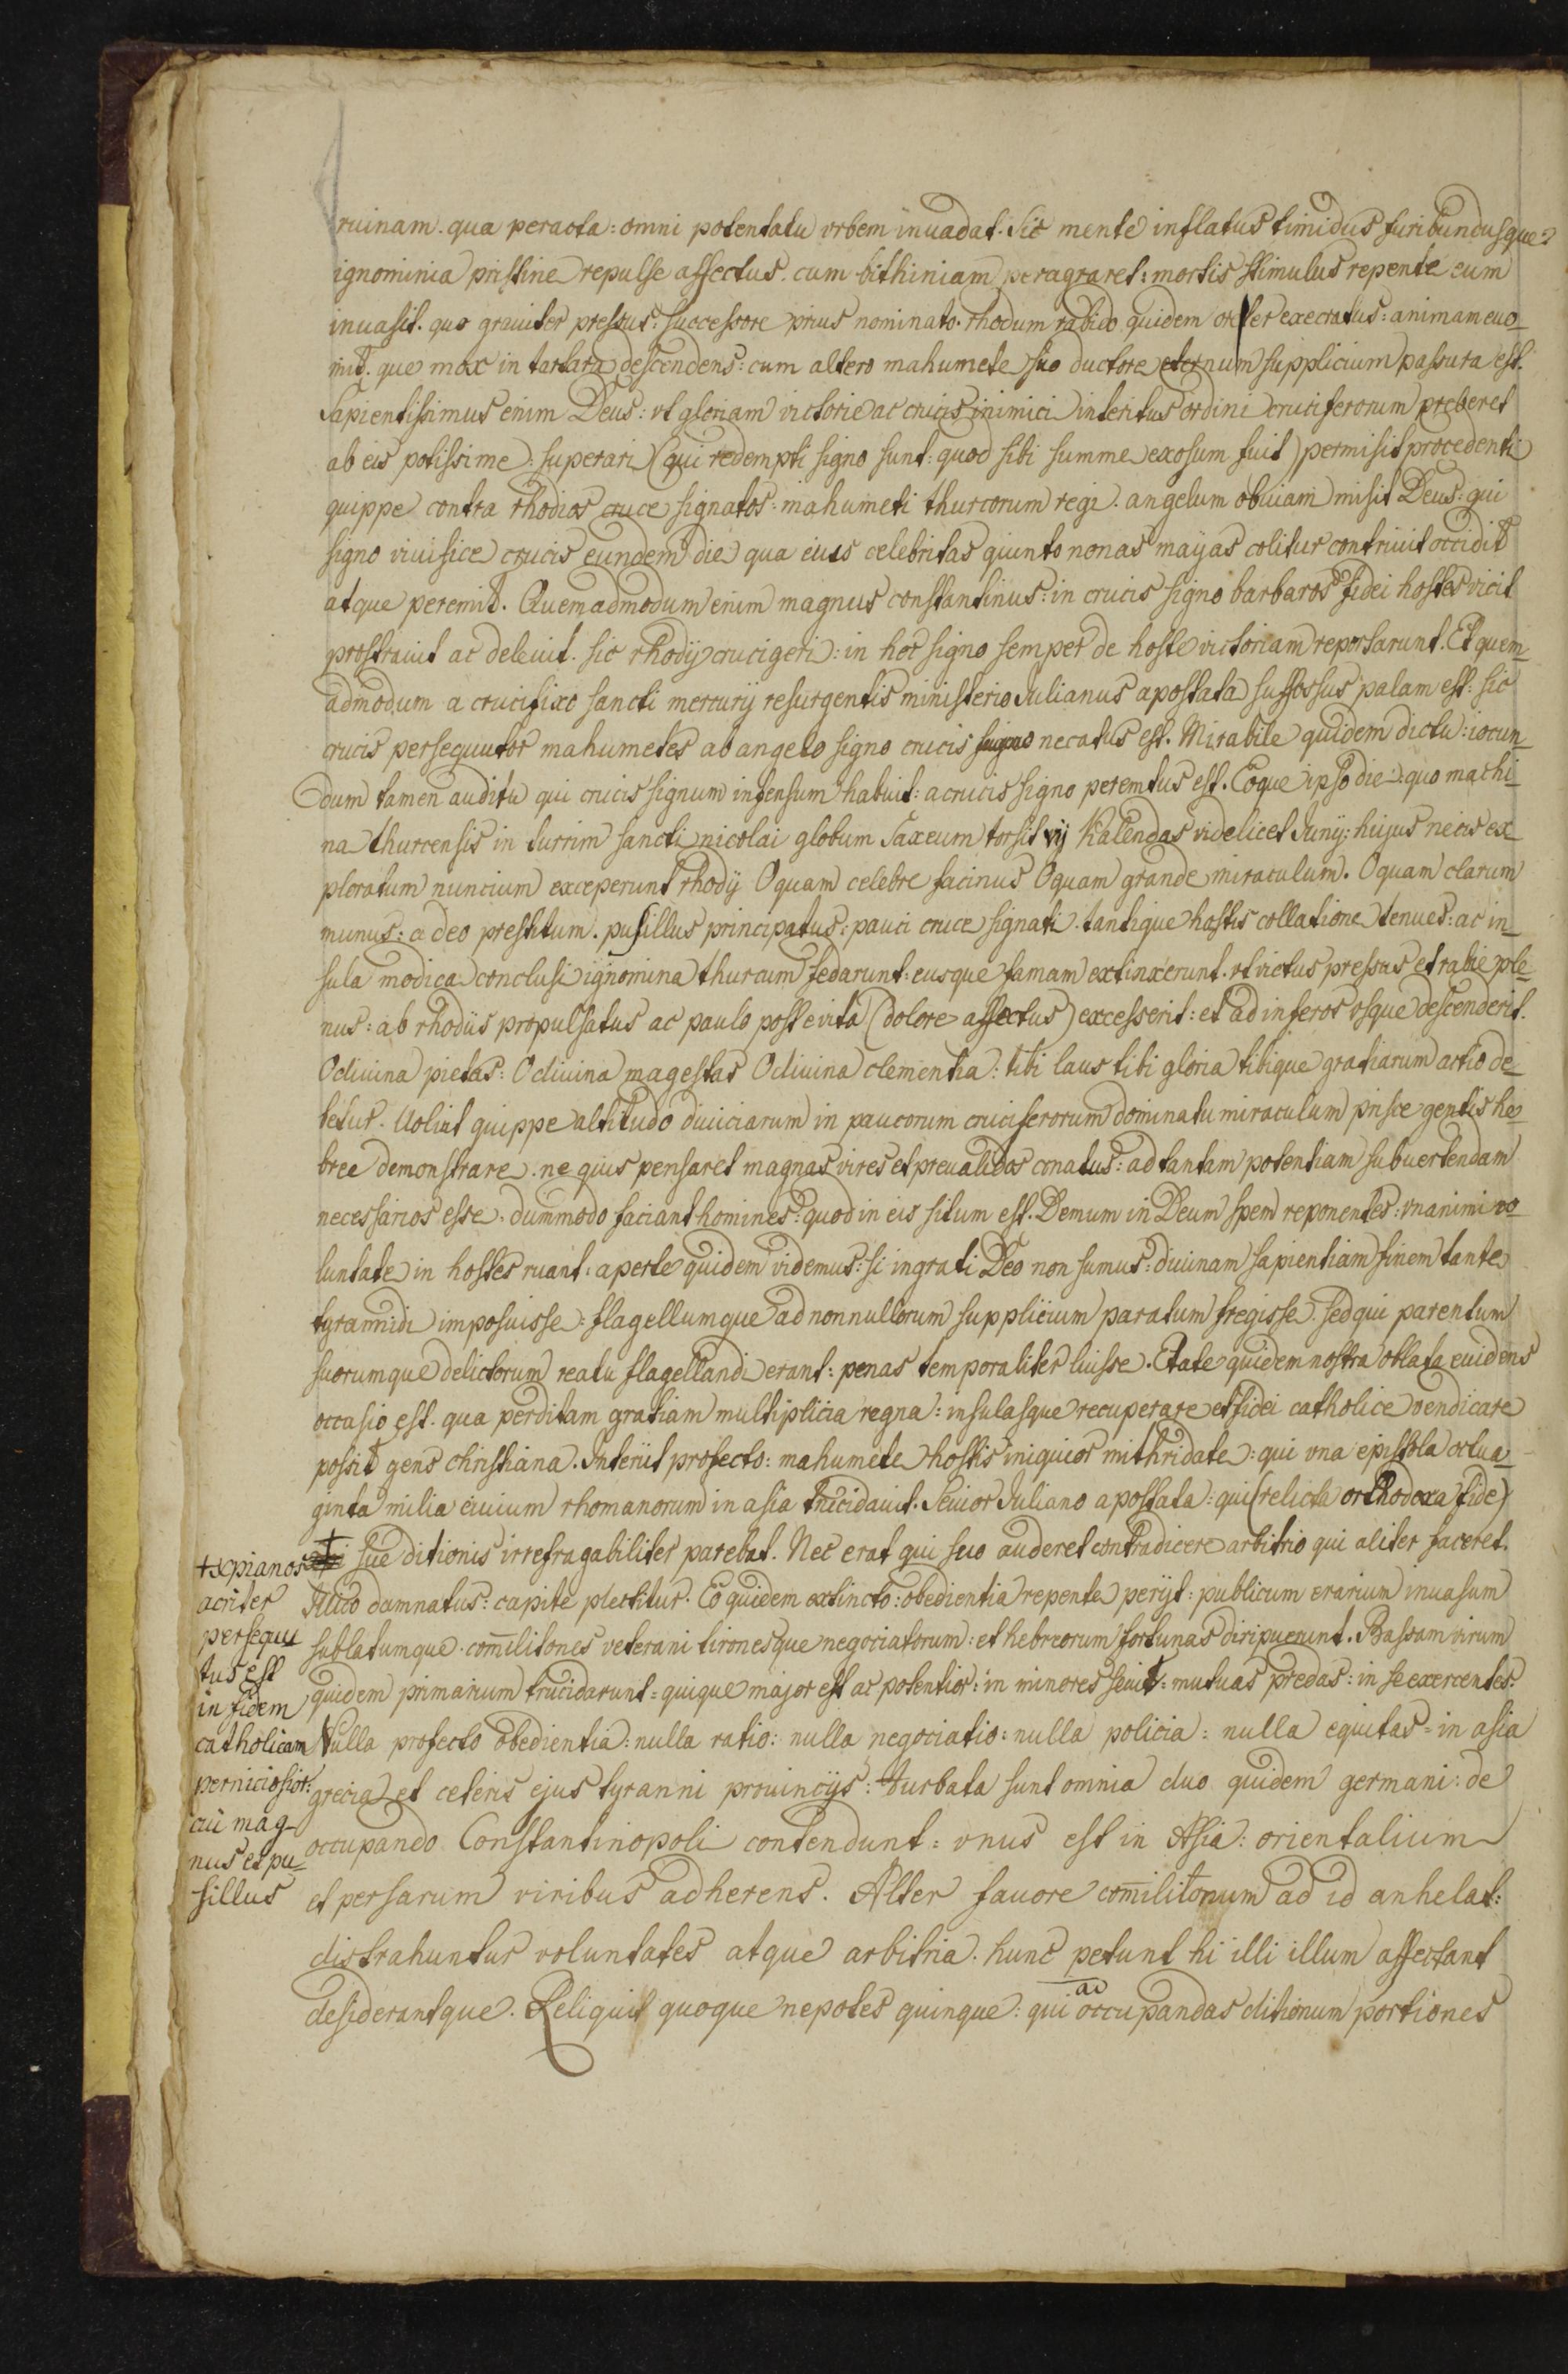 ruinam. qua peracta: omni potentatu vrbem inuadat. Sic mente inflatus timidus furibundusque
ignominia pristine repulse affectus. cum bithiniam peragraret: mortis stimulus repente eum
inuasit. quo grauiter pressus: successore prius nominato. rhodum rabido quidem ore ter execratus: animam euo-
mit. que mox in tartara descendens: cum altero mahumete suo ductore eternum supplicium passura est.
Sapientissimus enim Deus: vt gloriam victorie ac crucis inimici interitus ordini cruciferorum preberet
ab eis potissime: superari (qui redempti signo sunt: quod sibi summe exosum fuit) permisit procedenti
quippe contra rhodios cruce signatos: mahumeti thurcorum regi. angelum obuiam misit Deus: qui
signo viuifice crucis eundem die qua eius celebritas quinto nonas mayas colitur contriuit occidit
atque peremit. Quemadmodum enim magnus constantinus: in crucis signo barbaros fidei hostes vicit
prostrauit ac deleuit. sic rhodij crucigeri: in hoc signo semper de hoste victoriam reportarunt. Et quem-
admodum a crucifixo sancti mercurij resurgentis ministerio Iulianus apostata suffossus palam est: sic
crucis persequutor mahumetes ab angelo signo crucis necatus est. Mirabile quidem dictu: iocun-
dum tamen auditu qui crucis signum infensum habuit: a crucis signo peremtus est. Eoque ipso die: quo machi-
na thurcensis in turrim sancti nicolai globum Saxeum torsit vij Kalendas videlicet Junij: hujus necis ex-
ploratum nuncium exceperunt rhodij O quam celebre facinus O quam grande miraculum. O quam clarum
munus: a deo prestitum. pusillus principatus: pauci cruce signati. tantique hostis collatione tenues: ac in-
sula modica conclusi ignominia thurcum fedarunt: eusque famam extinxerunt. vt victus pressus et rabie ple-
nus: ab rhodiis propulsatus ac paulo post e vita (dolore affectus) excesserit: et ad inferos vsque descenderit.
O diuina pietas: O diuina magestas O diuina clementia: tibi laus tibi gloria tibique gratiarum actio de-
betur. Uoluit quippe altitudo diuiciarum in paucorum cruciferorum dominatu miraculum prisce gentis he-
bree demonstrare. ne quis pensaret magnas vires et preualidos conatus: ad tantam potentiam subuertendam
necessarios esse. dummodo faciant homines: quod in eis situm est. Demum in Deum spem reponentes: vnanimi vo-
luntate in hostes ruant: aperte quidem videmus: si ingrati Deo non sumus: diuinam sapientiam finem tante
tyrannidi imposuisse: flagellumque ad nonnullorum supplicium paratum fregisse. sed qui parentum
suorumque delictorum reatu flagellandi erant: penas temporaliter luisse. Etate quidem nostra oblata euidens
occasio est. qua perditam gratiam multiplicia regna: insulasque recuperare et fidei catholice vendicare
possit gens christiana. Interiit profecto: mahumete hostis iniquior mithridate: qui vna epistola octua-
ginta milia ciuium rhomanorum in asia trucidauit. Seuior Iuliano apostata: qui (relicta orthodoxa fide)
+ sue ditionis irrefragabiliter parebat. Nec erat qui suo auderet contradicere arbitrio qui aliter faceret.
Ilico damnatus: capite plectitur. Eo quidem extincto: obedientia repente perijt: publicum erarium inuasum
sublatumque. com̄ilitones veterani tironesque negociatorum: et hebreorum fortunas diripuerunt. Bassam virum
quidem primarium trucidarunt: quique major est ac potentior: in minores seuit: mutuas predas: in se exercentes:
Nulla profecto obedientia: nulla ratio: nulla negociatio: nulla policia: nulla equitas: in asia
grecia et ceteris ejus tyranni prouincijs: turbata sunt omnia duo quidem germani: de
occupando Constantinopoli contendunt: vnus est in Asia: orientalium
et persarum viribus adherens. Alter fauore com̄ilitonum ad id anhelat:
distrahuntur voluntates atque arbitria. hunc petunt hi illi illum affectant
desiderantque. Reliquit quoque nepotes quinque: qui ad occupandas ditionum portiones
+ xpianos
acriter
persequu
tus est
in fidem
catholicam
perniciosior:
cui mag-
nus et pu-
sillus